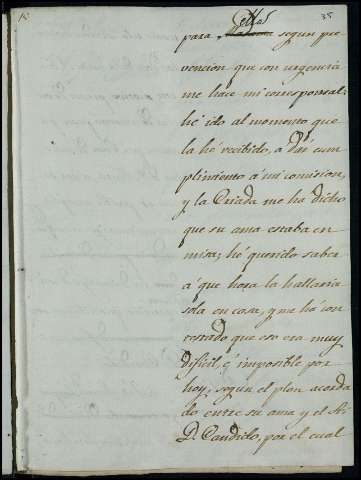 35
ellas
para segun pre
vencion que con urgencia
me hace mi corresponsal:
hé ido al momento que
la hé recibido, a dar cum
plimiento á mi comision,
y la Criada me ha dicho
que su ama estaba en
misa; hé querido saber
á que hora la hallaria
sola en casa, y me há con
testado que eso era muy
dificil, é imposible por
hoy, segun el plan acorda
do entre su ama y el Sr.
D. Candido, por el cual